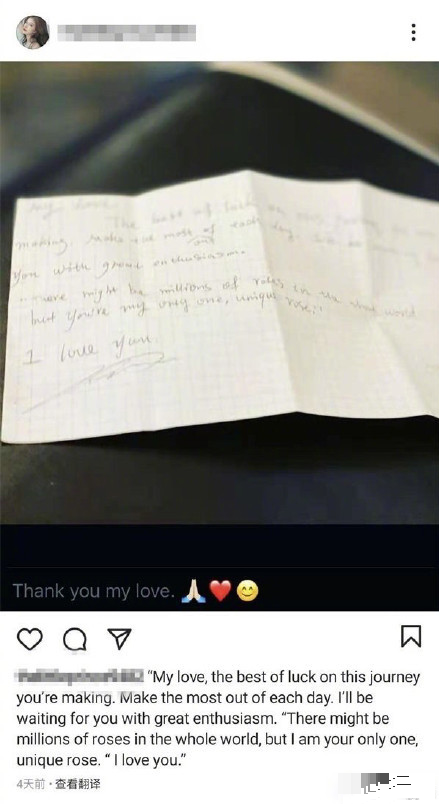 My love
The best of luck on this
making Make the most out of each day.
you with great enthusiasm.
"There might be millions of roses in the whole world
but you're my only one, unique rose."
I love you.
Thank you my love. 🙏🏻❤️😊
"My love, the best of luck on this journey
you're making. Make the most out of each day. I'll be
waiting for you with great enthusiasm. "There might be
millions of roses in the whole world, but I am your only one,
unique rose. " I love you."
4天前 · 查看翻译